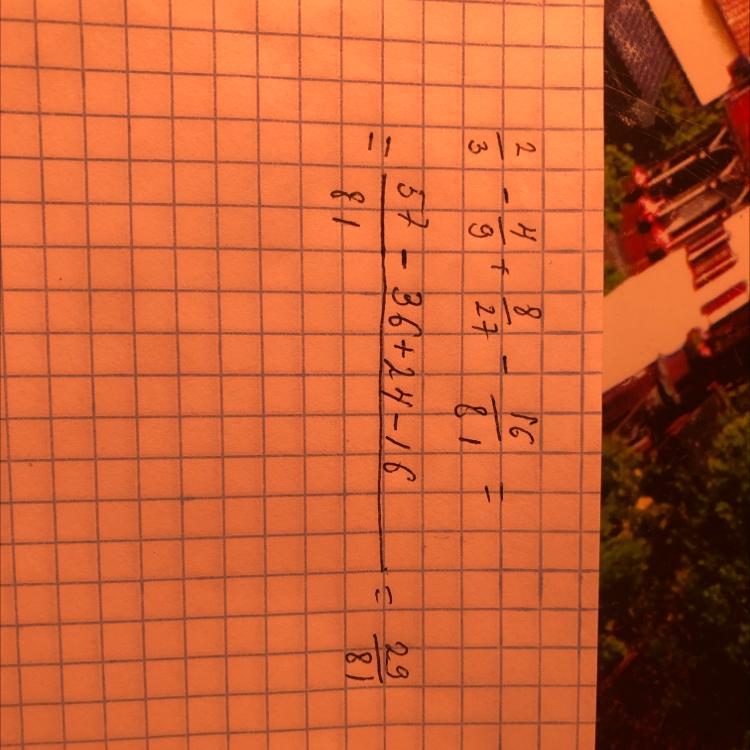 2/3 - 4/9 + 8/27 - 16/81 =
= (57 - 36 + 24 - 16)/81 = 29/81